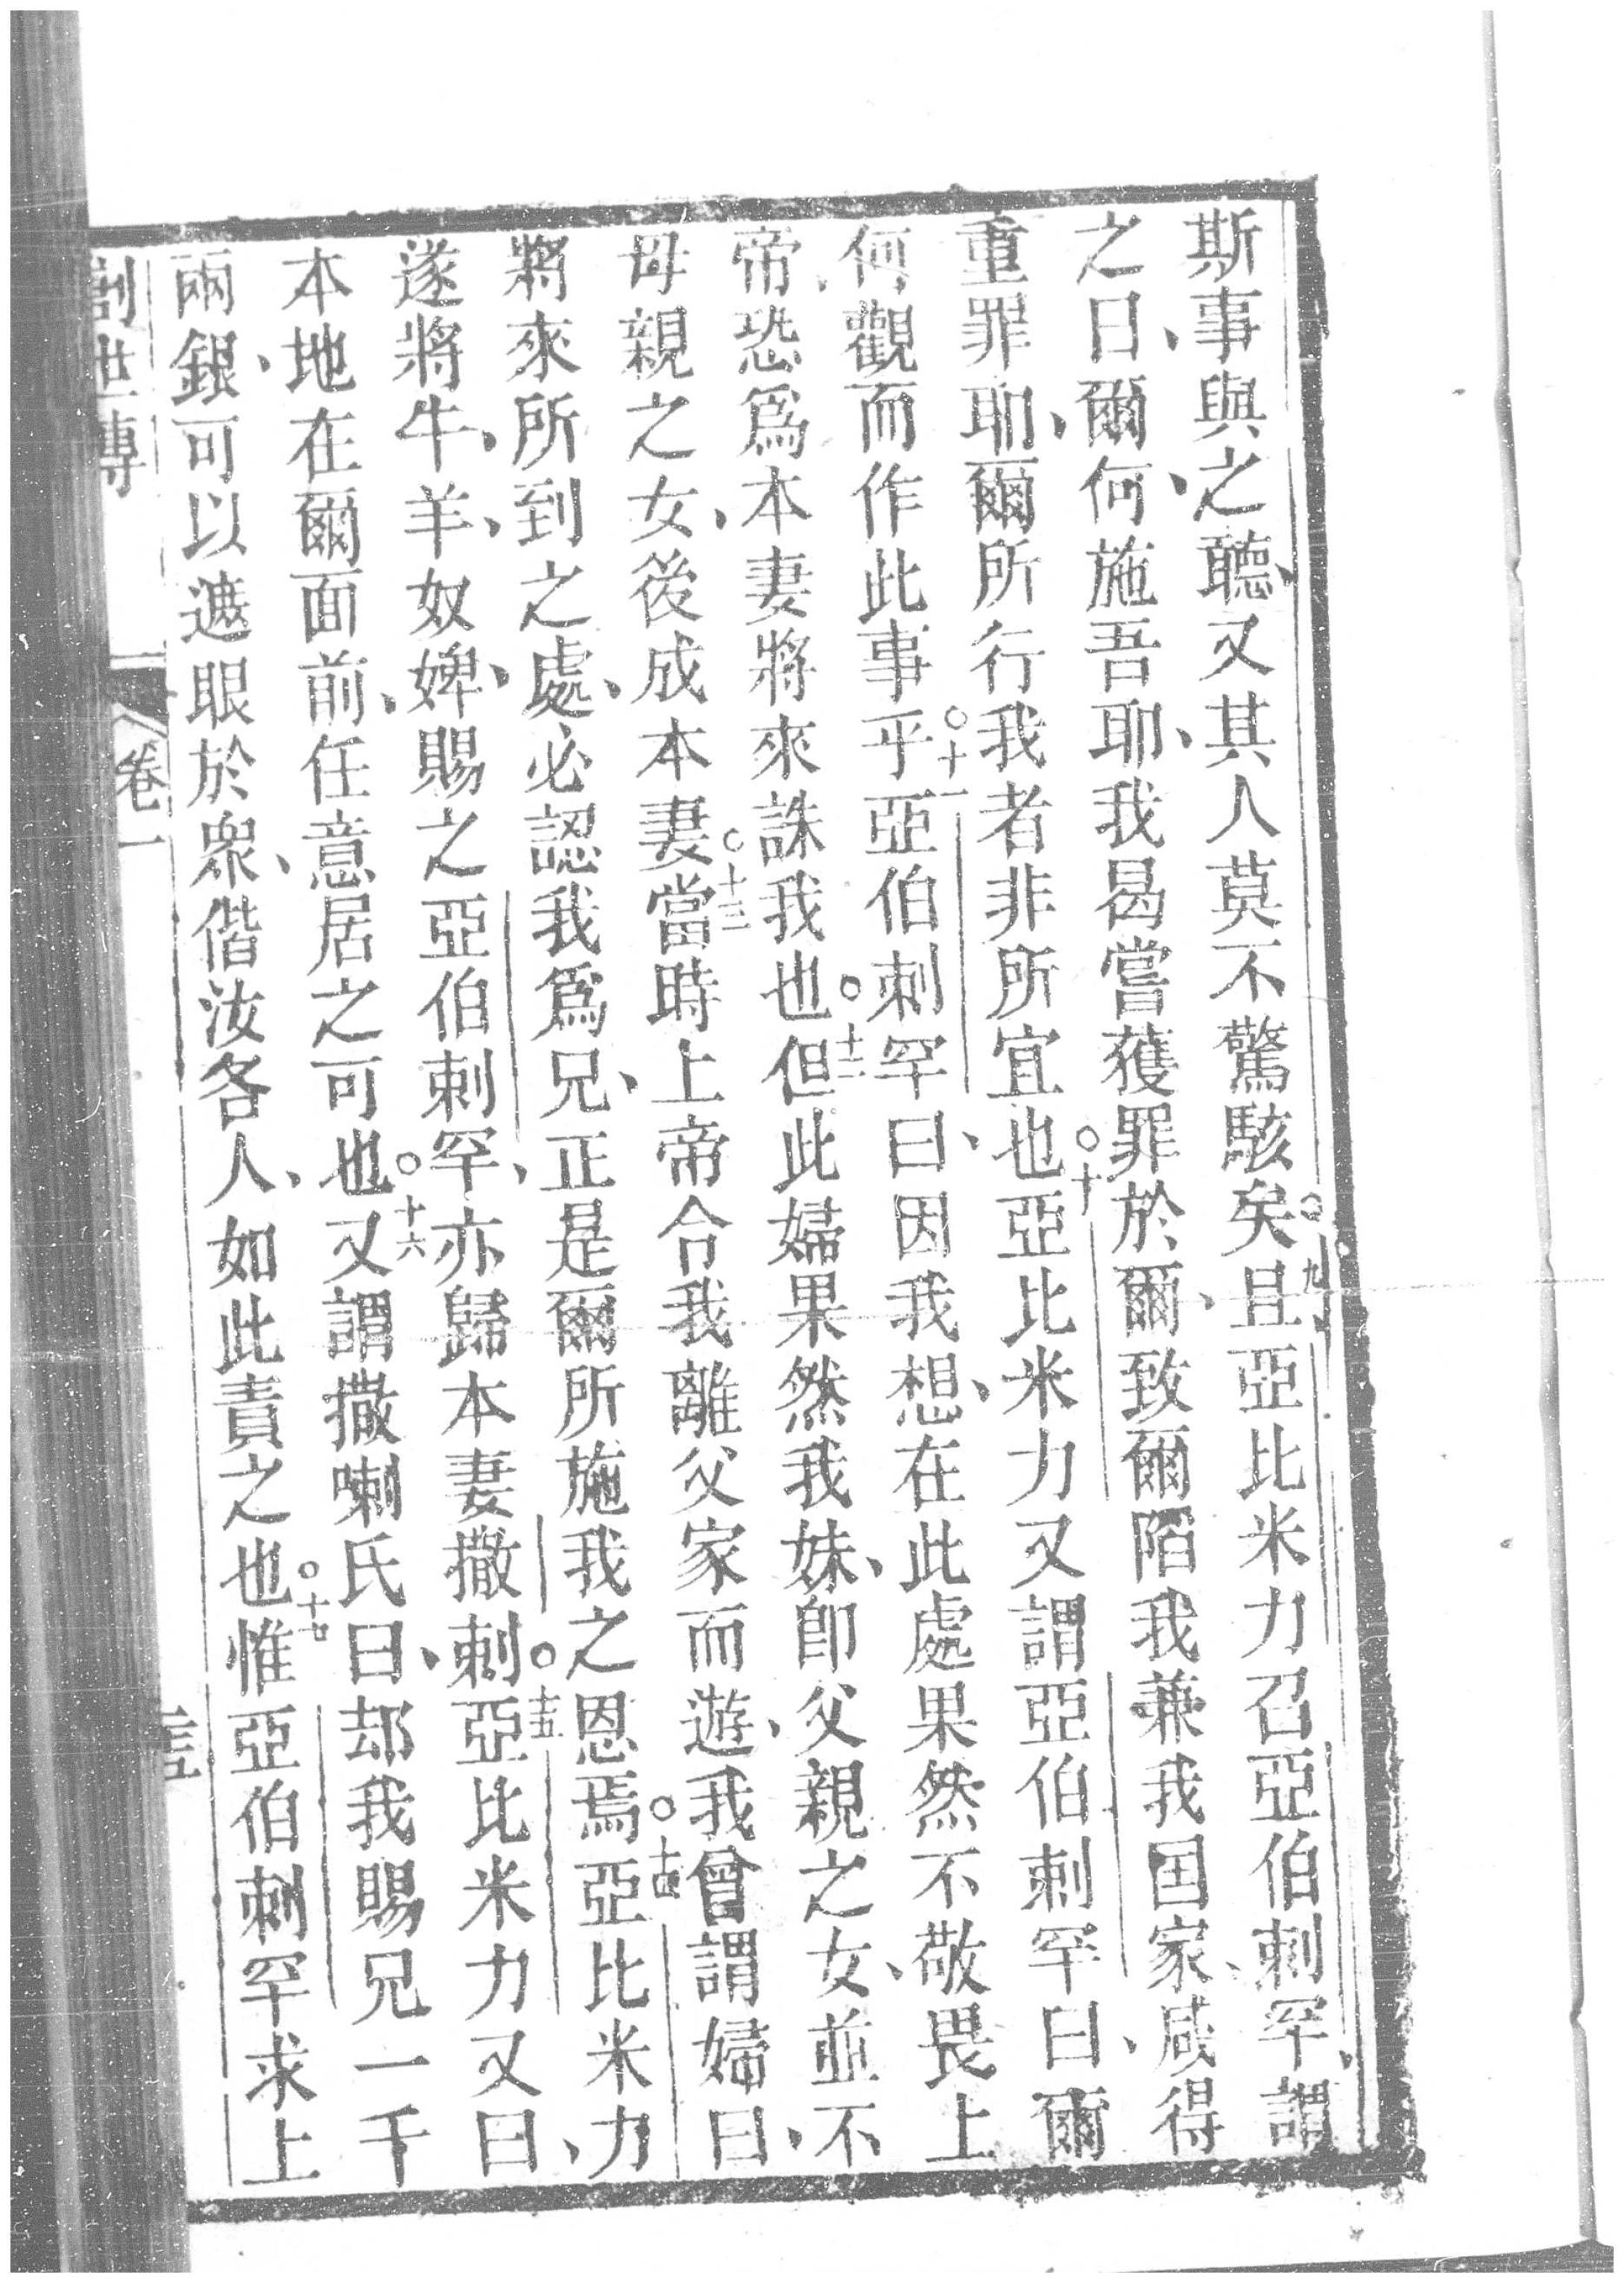 斯事與之聽、又其人莫不驚駭矣。○九且亞比米力召亞伯剌罕、謂
之曰、爾何施吾耶、我曷嘗獲罪於爾、致爾陷我兼我国家、咸得
重罪耶、爾所行我者非所宜也○十亞比米力又謂亞伯剌罕曰、爾
何觀而作此事乎○十一亞伯剌罕曰、因我想、在此處果然不敬畏上
帝、恐爲本妻將來誅我也○十二但此婦果然我妹、卽父親之女、並不
母親之女、後成本妻○十三當時上帝令我離父家而遊、我曾謂婦曰、
將來所到之處、必認我爲兄、正是爾所施我之恩焉○十四亞比米力
遂將牛、羊、奴婢、賜之亞伯剌罕、亦歸本妻撒剌○十五亞比米力又曰、
本地在爾面前、任意居之可也○十六又謂撒喇氏曰、却我賜兄一千
兩銀、可以遮眼於衆、偕汝各人、如此責之也○十七惟亞伯剌罕求上
創世傳 卷一